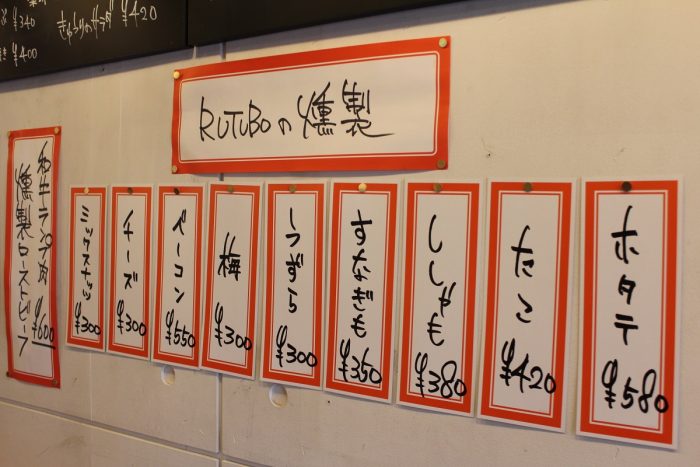 ¥340
きゅうりのサラダ ¥420
¥400
RUTUBOの燻製
和牛ランプ肉
燻製ローストビーフ
¥600
ミックスナッツ
¥300
チーズ
¥300
ベーコン
¥550
梅
¥300
うずら
¥300
すなぎも
¥350
ししゃも
¥380
たこ
¥420
ホタテ
¥580